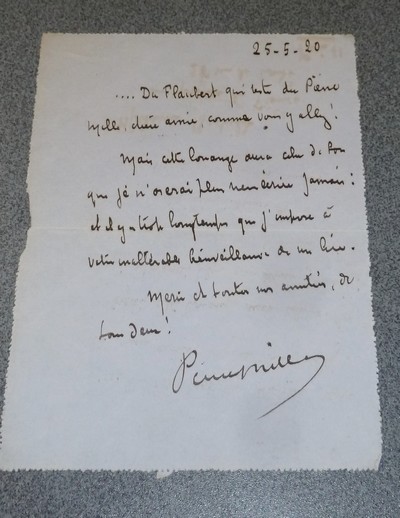 25-5-20
.... Du Flaubert qui reste du Pierre
Mille, chère amie, comme vous y allez !
Mais cette louange aura cela de bon
que je n'oserai plus rien écrire jamais :
et il y a trop longtemps que j'impose à
votre inaltérable bienveillance de me lire.
Merci et toutes nos amitiés, de
tous deux !
Pierre Mille